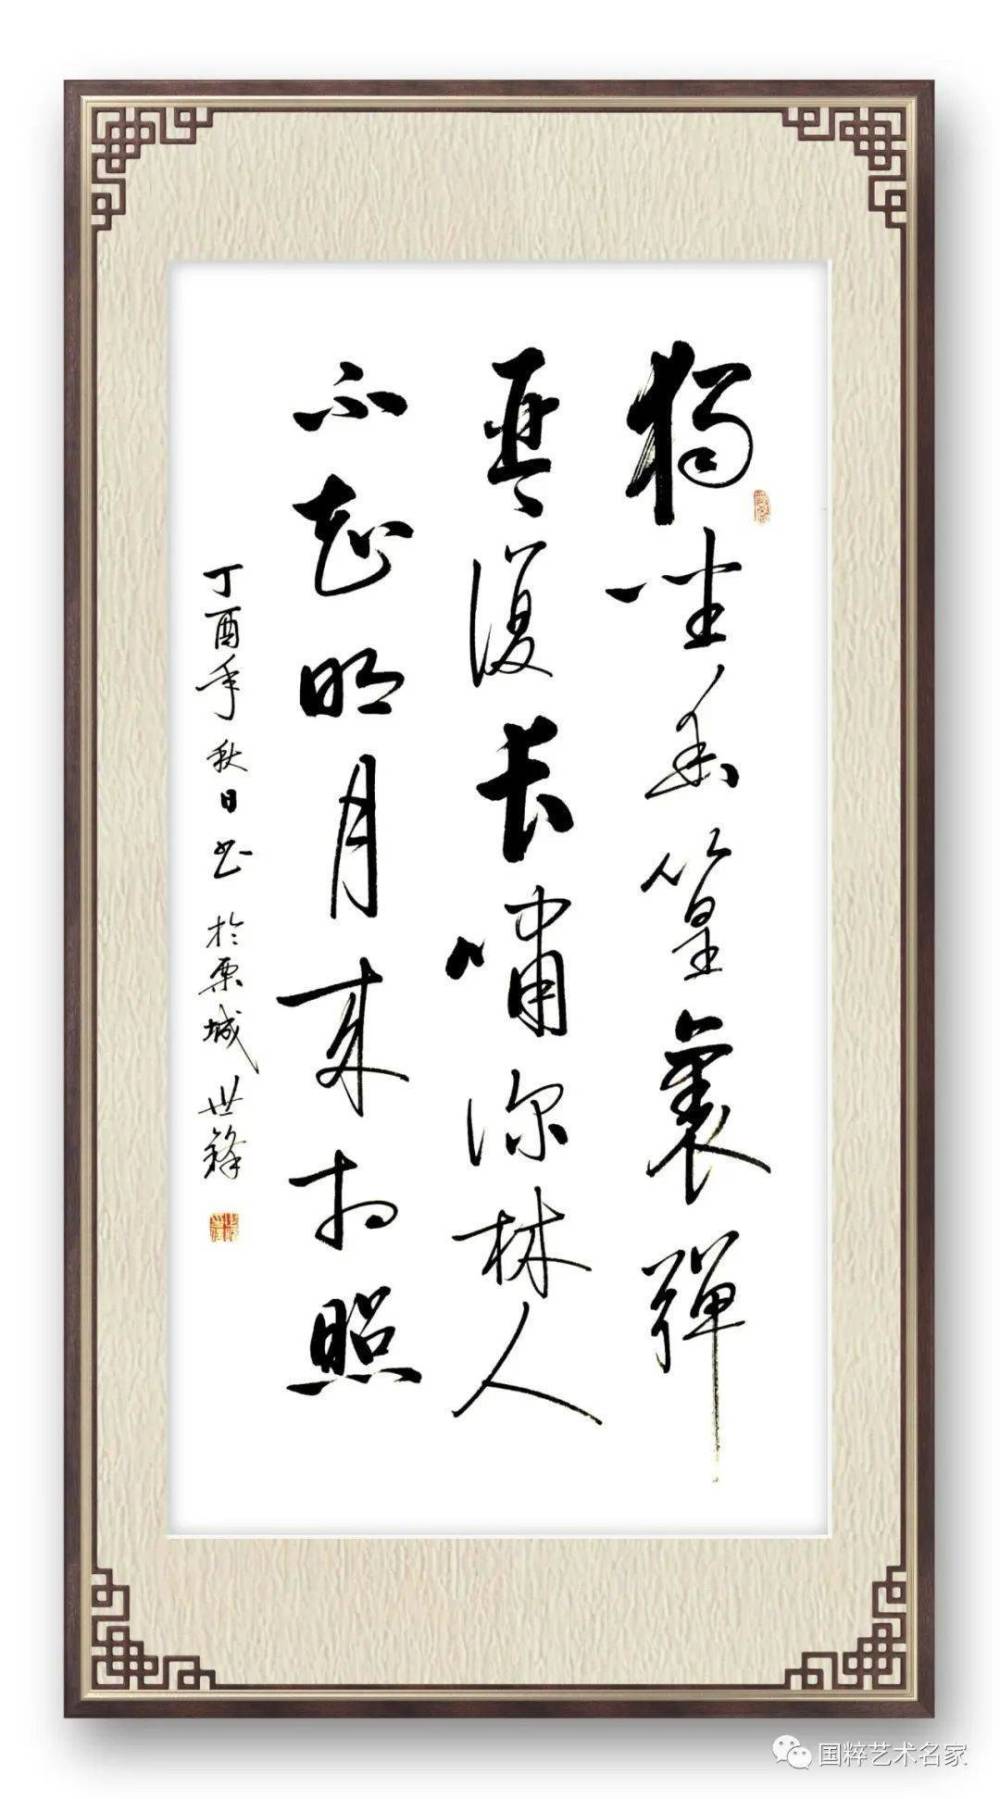 獨坐幽篁裏彈
琴復长嘯深林人
不知明月来相照
丁酉年秋日书於栗城世鋒
国粹艺术名家